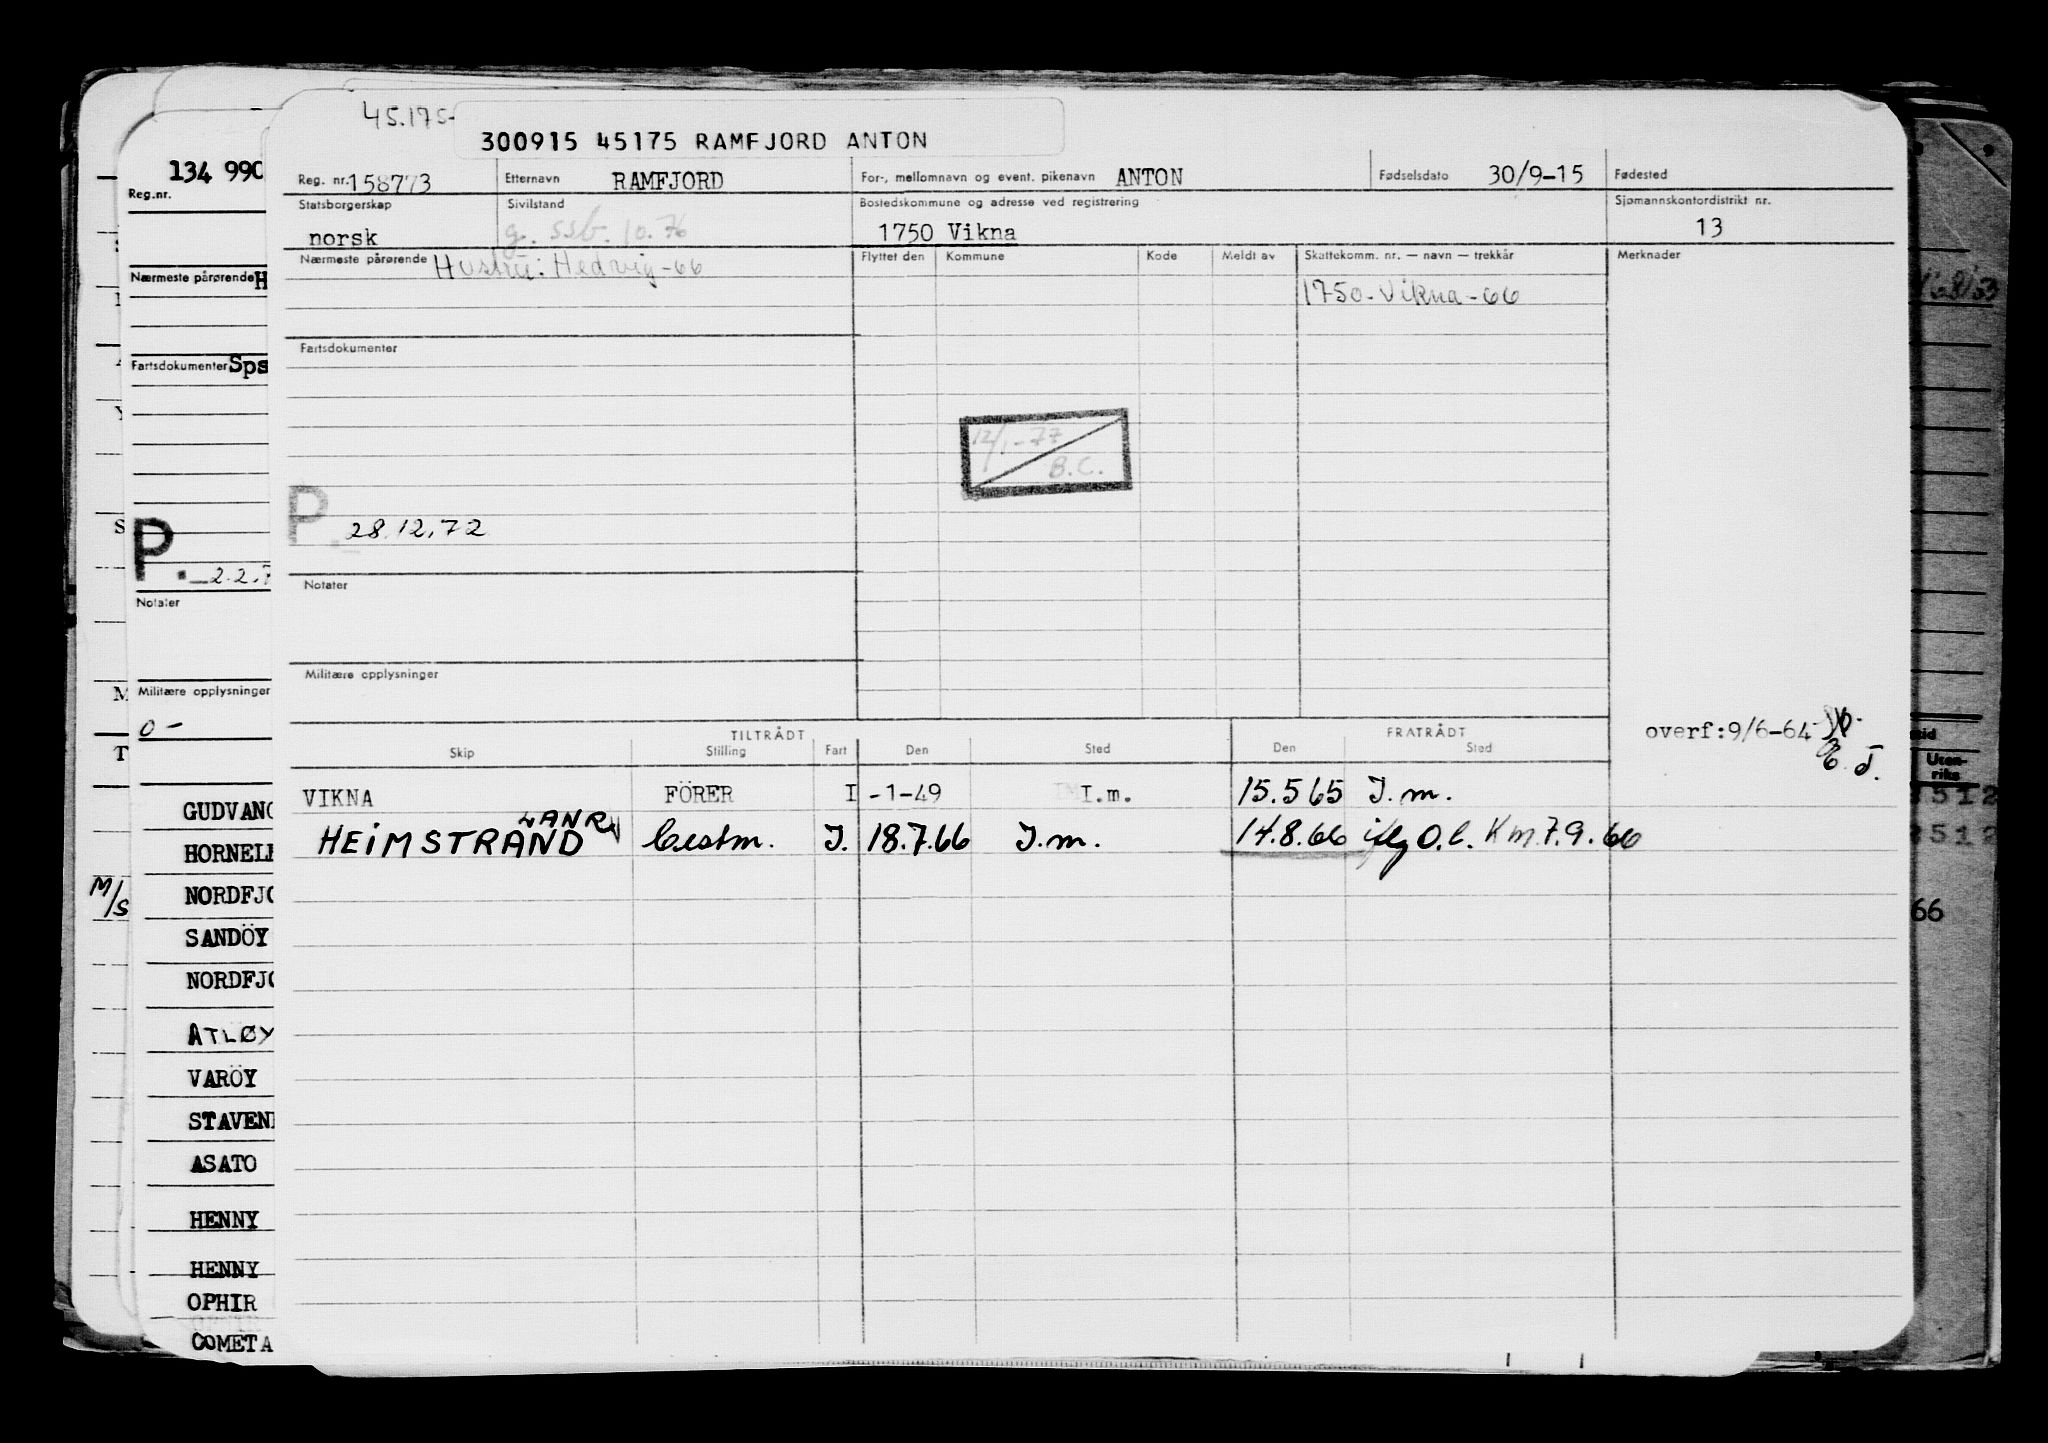 45.175-
300915 45175 RAMFJORD ANTON
Reg. nr. 158773 Etternavn RAMFJORD For-, mellomnavn og event. pikenavn ANTON Fødselsdato 30/9-15 Fødested
Statsborgerskap norsk Sivilstand g. ssb. 10.76 Bostedskommune og adresse ved registrering 1750 Vikna Sjømannskontordistrikt nr. 13
Nærmeste pårørende Hustru: Hedvig-66 Flyttet den Kommune Kode Meldt av Skattekomm. nr. — navn — trekkår Merknader
1750-Vikna-66
Fartsdokumenter
12/1-77
B.C.
P. 28.12.72
Notater
Militære opplysninger
overf:9/6-64
TILTRÅDT FRATRÅDT
Skip Stilling Fart Den Sted Den Sted
VIKNA FÖRER I -1-49 I.m. 15.5 65 I.m.
HEIMSTRAND I. 18.7.66 I.m. 14.8.66 iflg O.l. Km 7.9.66
134 990
Reg.nr.
Nærmeste pårørende H
Fartsdokumenter Sps
P. 2.2.7
Notater
Militære opplysninger
0 -
GUDVANG
HORNEL
M/S
NORDFJO
SANDÖY
NORDFJO
ATLØY
VARÖY
STAVEN
ASATO
HENNY
HENNY
OPHIR
COMETA
Uten-
riks
512
512
66